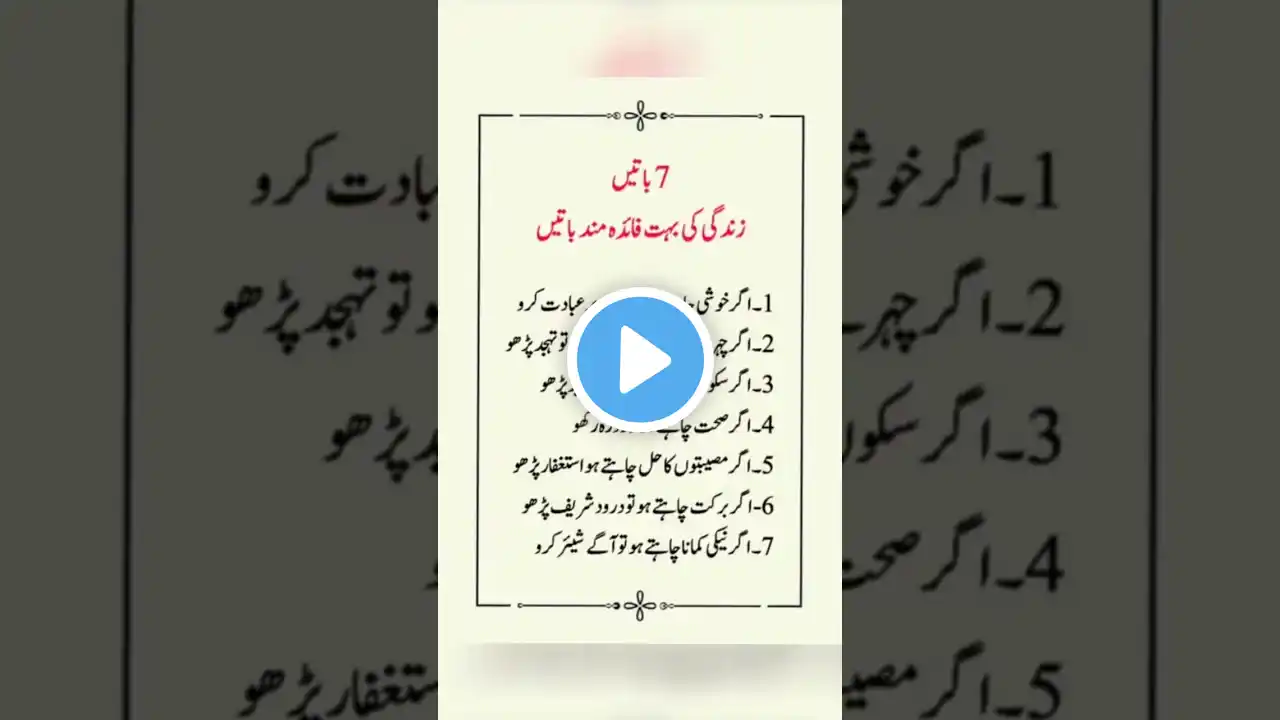 7 باتیں
زندگی کی بہت فائدہ مند باتیں
1۔اگر خوشی عبادت کرو
2۔اگر تو تہجد پڑھو
3۔اگر پڑھو
4۔اگر صحت رکھو
5۔اگر مصیبتوں کا حل چاہتے ہو استغفار پڑھو
6-اگر برکت چاہتے ہو تو درود شریف پڑھو
7۔اگر نیکی کمانا چاہتے ہو تو آگے شیئر کرو